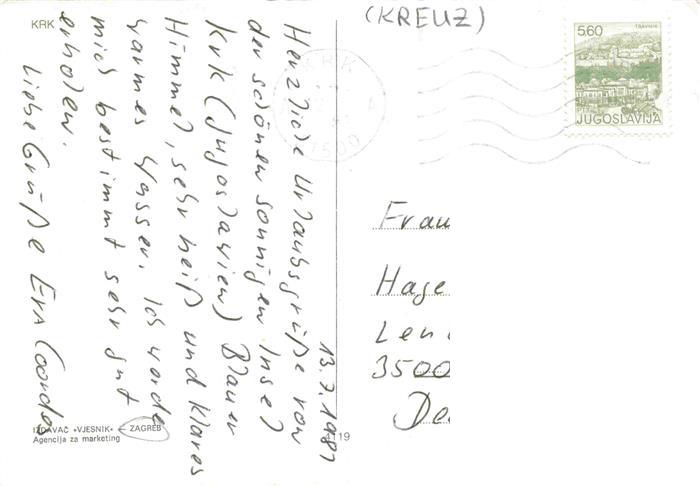 KRK
(KREUZ)
5.60
TRAVNIK
JUGOSLAVIJA
KRK
13.7.1981
Herzliche Urlaubsgrüße von
der schönen sonnigen Insel
Krk (Jugoslawien) Blauer
Himmel, sehr heiß und klares
warmes Wasser. Ich werde
mich bestimmt sehr gut
erholen.
Liebe Grüße Eva
Frau
Hage
Len
3500
De
IZDAVAČ »VJESNIK« ← ZAGREB
Agencija za marketing